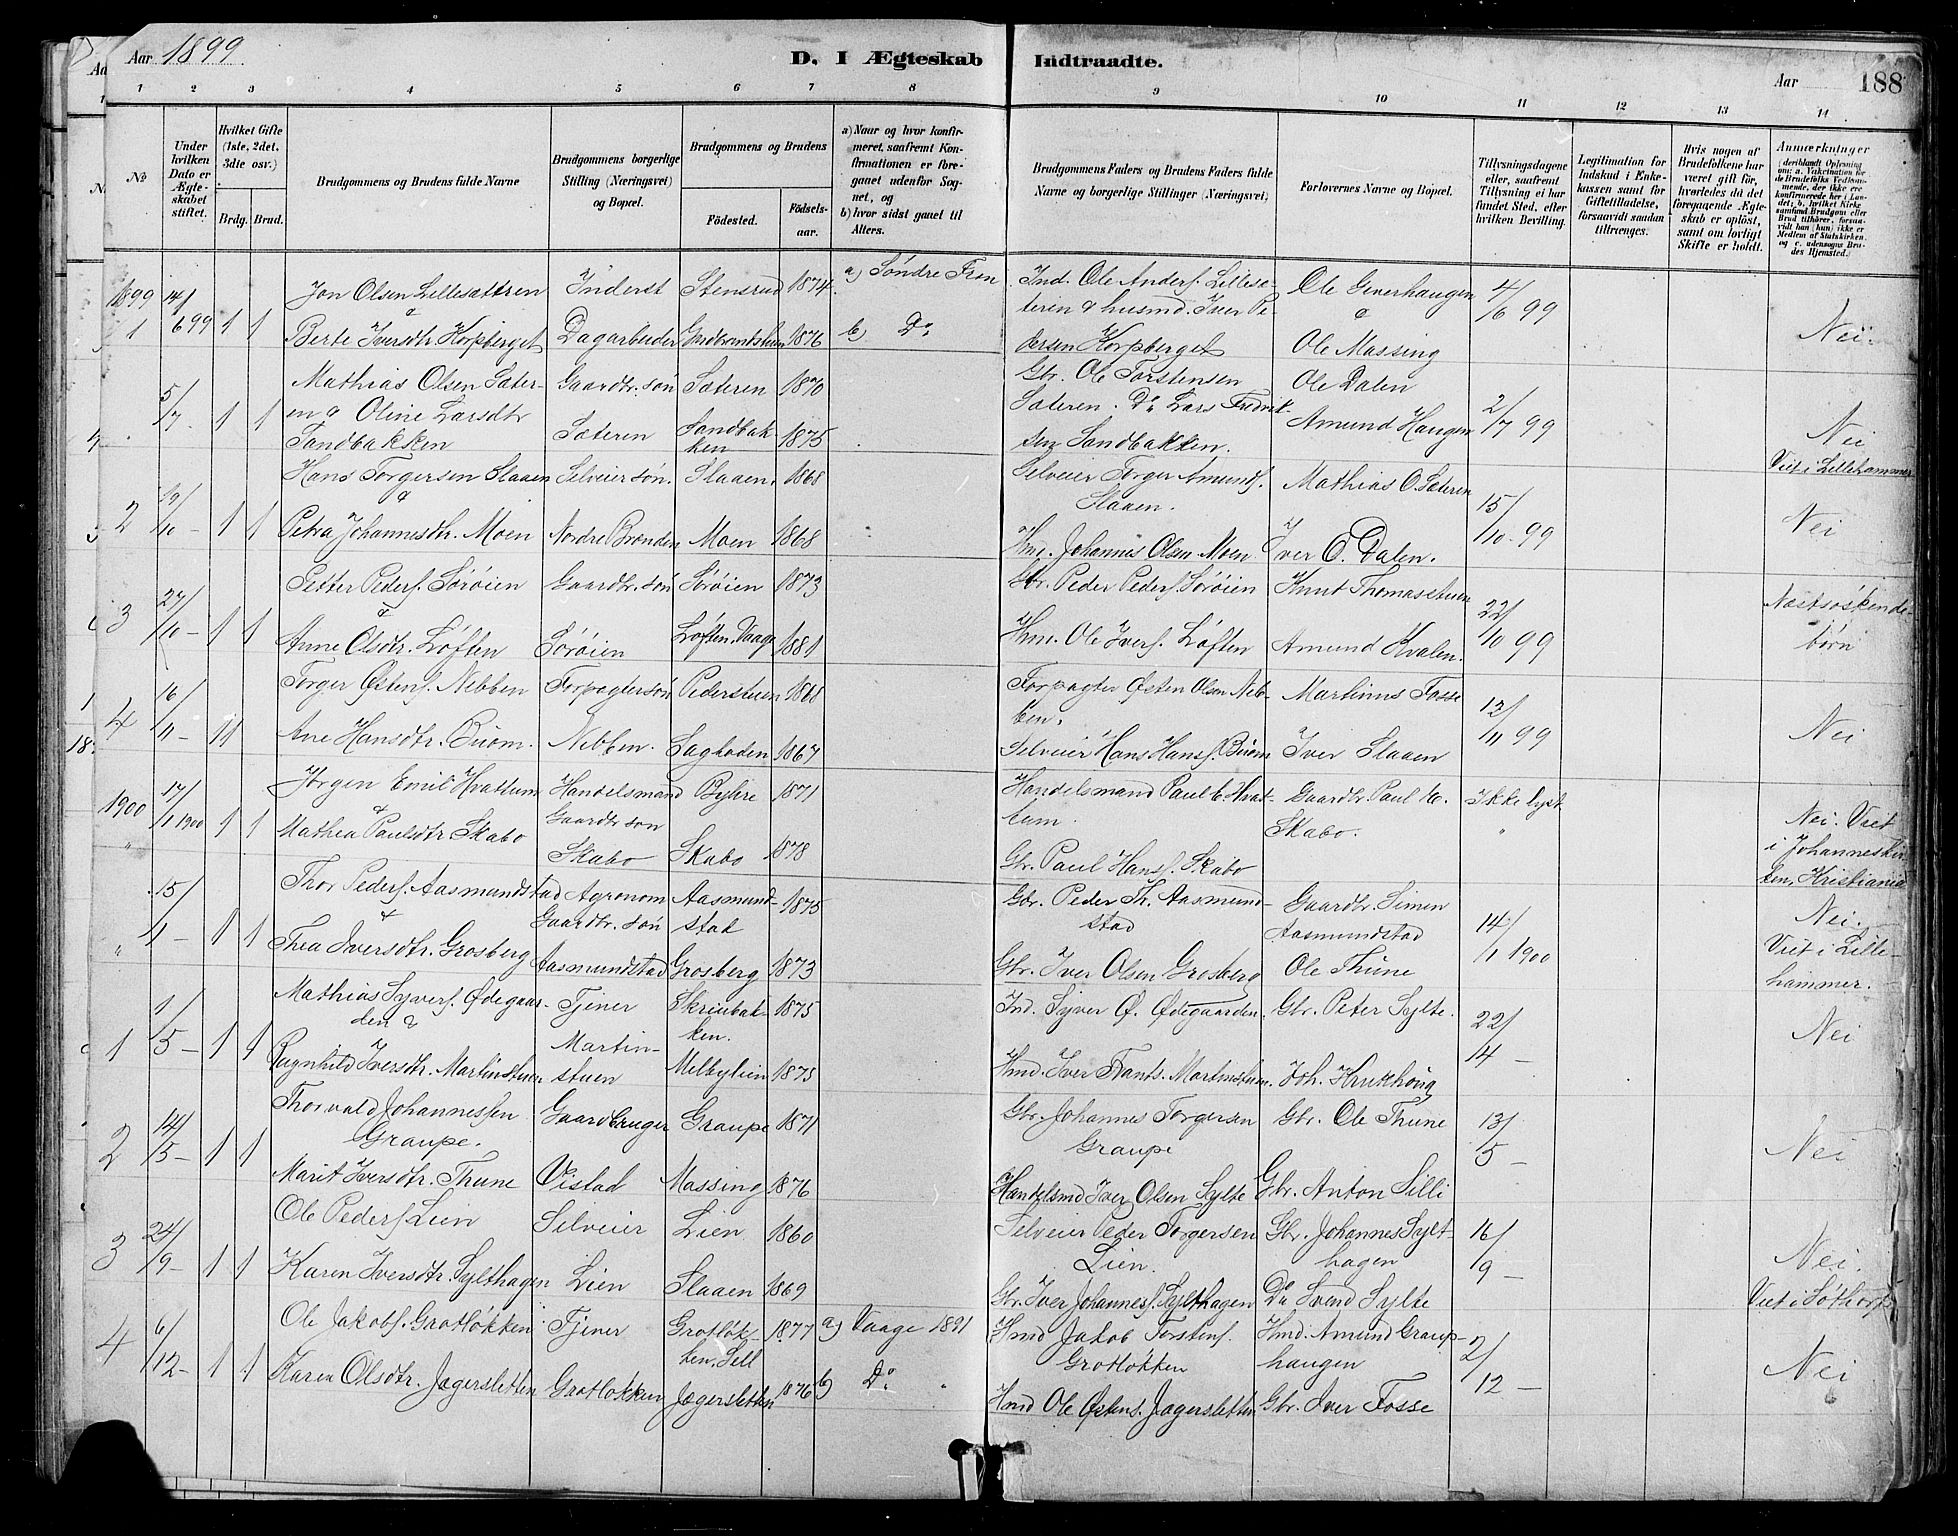 Aar 1899. D. I Ægteskab Indtraadte. Aar 188
1 2 3 4 5 6 7 8 9 10 11 12 13 14
No
Under hvilken Dato er Ægteskabet stiftet.
Hvilket Gifte (1ste, 2det, 3die osv.)
Brdg. Brud.
Brudgommens og Brudens fulde Navne
Brudgommens borgerlige Stilling (Næringsvei) og Bopæl.
Brudgommens og Brudens
Fødested.
Fødselsaar.
a) Naar og hvor konfirmeret, saafremt Konfirmationen er foregaaet udenfor Sognet, og
b) hvor sidst gaaet til Alters.
Brudgommens Faders og Brudens Faders fulde Navne og borgerlige Stillinger (Næringsvei)
Forlovernes Navne og Bopæl.
Tillysningsdagene eller, saafremt Tillysning ei har fundet Sted, efter hvilken Bevilling.
Legitimation for Indskud i Enkekassen samt for Giftetilladelse, forsaavidt saadan tiltrænges.
Hvis nogen af Brudefolkene har været gift før, hvorledes da det foregaaende Ægteskab er opløst, samt om lovligt Skifte er holdt.
Anmerkninger
1899 14/6 99 Jon Olsen Lillesættren Inderst Stensrud 1874 a) Søndre Fron Ind. Ole Anders. Lillese- Ole Geverhaugen 4/6 99
1 1 1 & teren & husmd. Iver Pe- & Nei.
Berte Iversdtr. Korpberget Dagarbeider Gudbrandstuen 1876 b) Do dersen Korpberget Ole Massing
Mathias Olsen Sæter- Gaardbr. søn Sæteren 1870 Gbr. Ole Torstensen Ole Dalen
5/7 1 1 en & Oline Larsdtr Sandbak- Sæteren. Do Lars Fredrik- Amund Haugen 2/7 99 Nei
Sandbakken Sæteren ken 1875 sen Sandbakken. Viet i Lillehammer
Hans Torgersen Slaaen Selveiersøn. Slaaen. 1868 Selveier Torger Amunds. Mathias O. Sæteren
2 19/10 - 1 1 & Slaaen. 15/10 99 Nei
Petra Johannesdtr. Moen Nordre Brænden Moen 1868 Hmd. Johannes Olsen Moen Iver O. Dalen.
Petter Peders. Sørøien Gaardbr. søn Sørøien 1873 Gbr. Peder Peders. Sørøien Knut Thomasstuen
3 27/10 - 1 1 & 22/10 99 Næstsøskende-
Anne Olsdtr. Løften Sørøien Løften, Vaage 1881 Hmd. Ole Ivers. Løften Amund Kvalen. børn
Torger Østens. Nebben Forpagtersøn Pederstuen 1868 Forpagter Østen Olsen Neb- Martinus Fosse
4 16/11 - 1 1 ben. 12/11 99 Nei
Ane Hansdtr. Buom. Nebben. Sagboden 1867 Selveier Hans Hans. Buom Iver Slaaen
Jørgen Emil Hvattum Handelsmand Byhre 1871 Handelsmand Paul E. Hvat- Gaardbr. Paul H. Ikke lyst
1900 17/1 1900 1 1 & Gaardbr søn tum. Skabo. " Nei. Viet
" Mathea Paulsdtr. Skabo Skabo Skabo 1878 Gbr. Paul Hans. Skabo i Johanneskir-
ken, Kristiania
Thor Peders. Aasmundstad Agronom Aasmund- 1875 Gbr. Peder Th. Aasmund- Gaardbr. Simen Nei.
" 15/1 - 1 1 & Gaardbr. søn stad stad Aasmundstad 14/1 1900 Viet i Lille-
Thea Iversdtr. Grosberg Aasmundstad Grosberg 1873 Gbr. Iver Olsen Grosberg Ole Thune hammer.
Mathias Syvers. Ødegaar- Tjener Skriubak- 1875 Ind. Syver Ø. Ødegaarden. Gbr. Peter Sylte.
1 1/5 - 1 1 den & Martin- ken. 22/14 - Nei
Ragnhild Iversdtr. Martinstuen stuen Melbylien 1875 Hmd. Iver Frants. Martinstuen. Joh. Hrukhoug
Thorvald Johannessen Gaardbruger Graupe 1871 Gbr. Johannes Torgersen Gbr. Ole Thune 13/5 -
2 14/5 - 1 1 Graupe. Graupe Nei
Marit Iversdtr. Thune Vistad Massing 1876 Handelsmd Iver Olsen Sylte Gbr. Anton Silli
Ole Peders. Lien Selveier Lien 1860 Selveier Peder Torgersen Gbr. Johannes Sylt- 16/9 -
3 24/9 - 1 1 Lien. hagen Nei.
Karen Iversdtr. Sylthagen Lien Slaaen 1869 Gbr. Iver Johannes. Sylthagen Do Svend Sylte Viet i Sothorp
Ole Jakobs. Grotløkken Tjener Grotløk- 1877 a) Vaage 1891 Hmd Jakob Torstens. Hmd. Amund Graup-
4 6/12 - 1 1 ken, Sell Grotløkken haugen 2/12 - Nei
Karen Olsdtr. Jægersletten Grotløkken Jægersletten 1876 b) Do " Hmd Ole Østens. Jægersletten Gbr. Iver Fosse